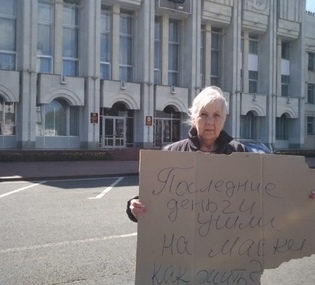 Последние
деньги
ушли
на маски
как жить?